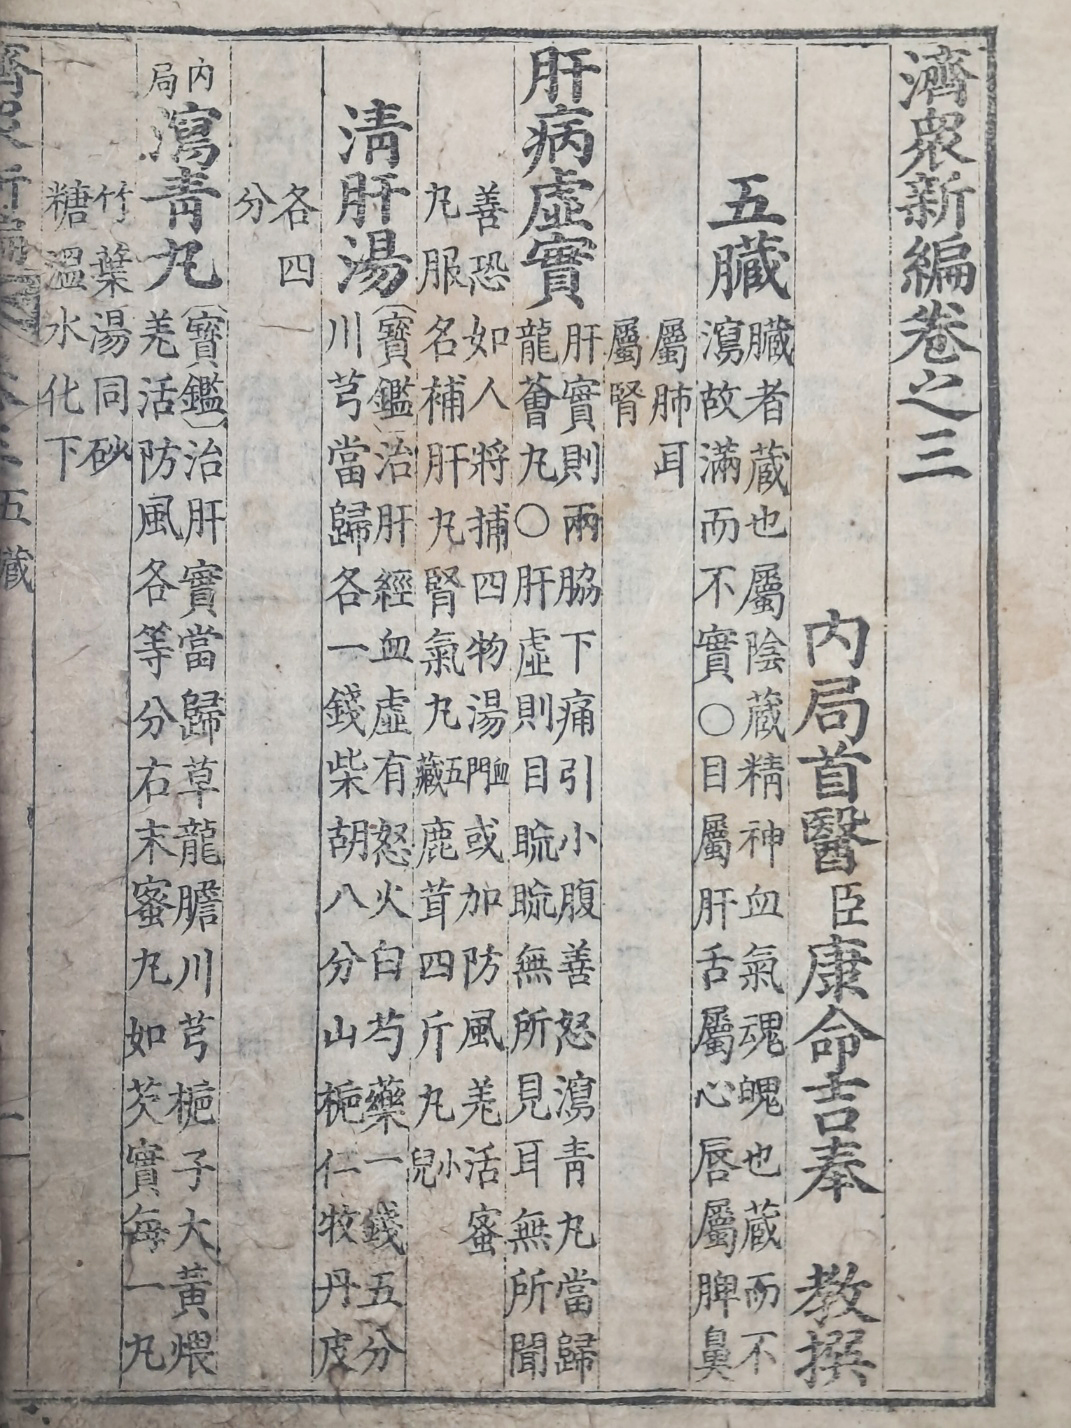 濟衆新編卷之三
內局首醫臣康命吉奉　教撰
五臟
臟者蔵也屬陰蔵精神血氣魂魄也蔵而不
瀉故滿而不實〇目屬肝舌屬心唇屬脾鼻
屬肺耳
屬腎
肝病虛實
肝實則兩脇下痛引小腹善怒瀉青丸當歸
龍薈丸〇肝虛則目䀮䀮無所見耳無所聞
善恐如人將捕四物湯血門或加防風羌活蜜
丸服名補肝丸腎氣丸五藏鹿茸四斤丸小兒
淸肝湯
（寶鑑）治肝經血虛有怒火白芍藥一錢五分
川芎當歸各一錢柴胡八分山梔仁牧丹皮
各四
分
內局
瀉靑丸
（寶鑑）治肝實當歸草龍膽川芎梔子大黃煨
羌活防風各等分右末蜜丸如芡實每一丸
竹葉湯同砂
糖溫水化下
五藏